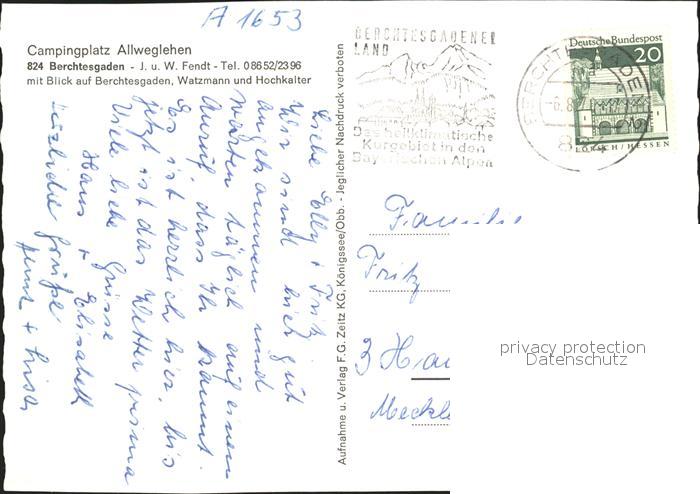 A 1653
Campingplatz Allweglehen
824 Berchtesgaden - J. u. W. Fendt - Tel. 08652/2396
mit Blick auf Berchtesgaden, Watzmann und Hochkalter
Liebe Elly + Fritz
Wir sind hier gut
angekommen und
warten täglich auf einen
Anruf dass Ihr kommt.
Es ist herrlich hier, bis
jetzt ist das Wetter prima
Viele liebe Grüsse
Hans + Elisabeth
herzliche Grüße
Aufnahme u. Verlag F. G. Zeitz KG, Königssee/Obb. - Jeglicher Nachdruck verboten
BERCHTESGADENER
LAND
Das heilklimatische
Kurgebiet in den
Bayerischen Alpen
BERCHTESGADEN
Deutsche Bundespost
20
LORSCH/HESSEN
Familie
Fritz
3 Ha
Meckl
privacy protection
Datenschutz